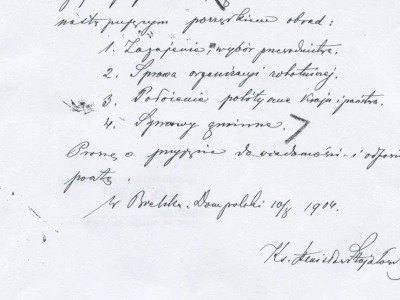 następującym porządkiem obrad:
1. Zagajenie i wybór prezydentów.
2. Sprawa organizacyi robotniczej.
3. Położenie polityczne kraju i państwa.
4. Sprawy gminne.
Proszę o przyjęcie do wiadomości i odpow
pocztą.
W Bielsku. Dom polski 10/8 1904.
Ks. Stanisław Stojałow